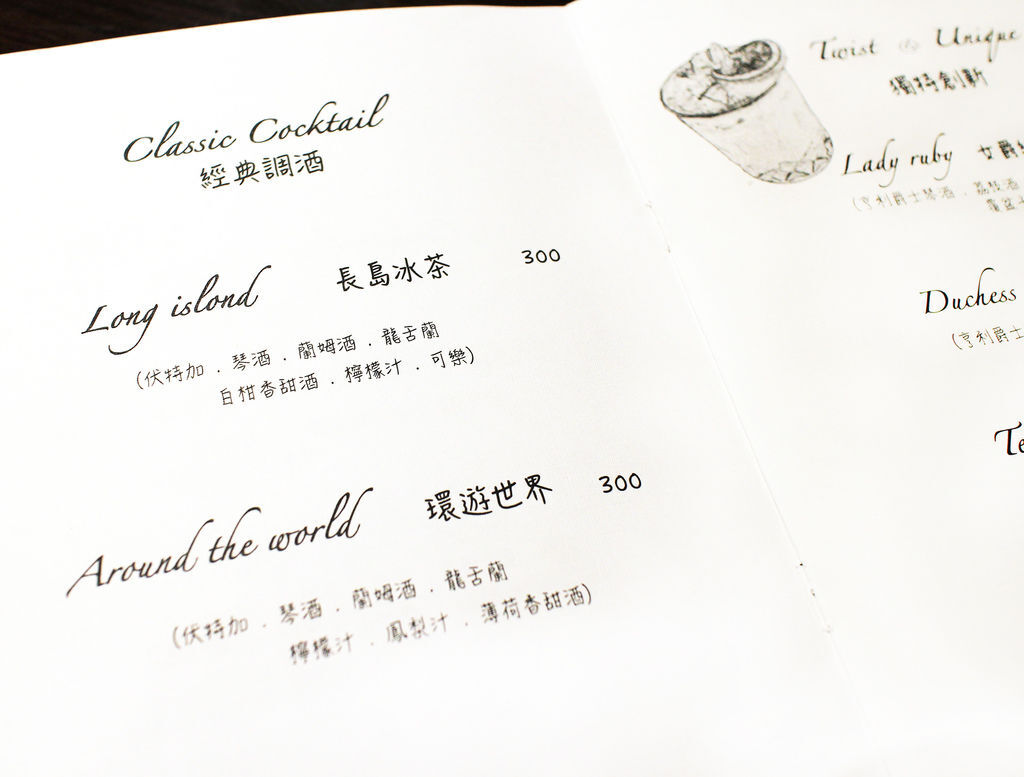 Classic Cocktail
經典調酒
Long islond 長島冰茶 300
(伏特加 . 琴酒 . 蘭姆酒 . 龍舌蘭
白柑香甜酒 . 檸檬汁 . 可樂)
Around the world 環遊世界 300
(伏特加 . 琴酒 . 蘭姆酒 . 龍舌蘭
檸檬汁 . 鳳梨汁 . 薄荷香甜酒)
Twist & Unique
獨特創新
Lady ruby 女爵
(亨利爵士琴酒 . 荔枝酒
覆盆
Duchess
(亨利爵士
Te